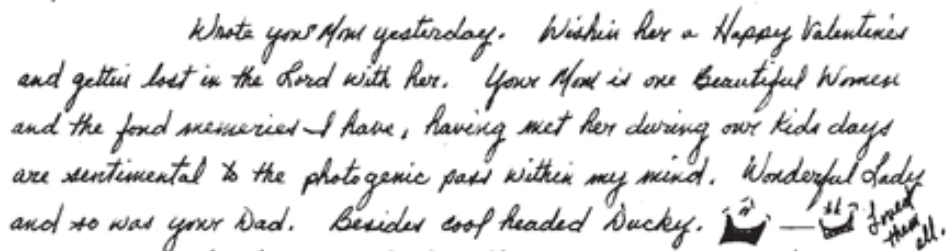 Wrote your Mom yesterday. Wishin her a Happy Valentines
and gettin lost in the Lord with her. Your Mom is one Beautiful Women
and the fond memeries I have, having met her during our kids days
are sentimental to the photogenic pass within my mind. Wonderful Lady
and so was your Dad. Besides cool headed Ducky. — Loved them all.